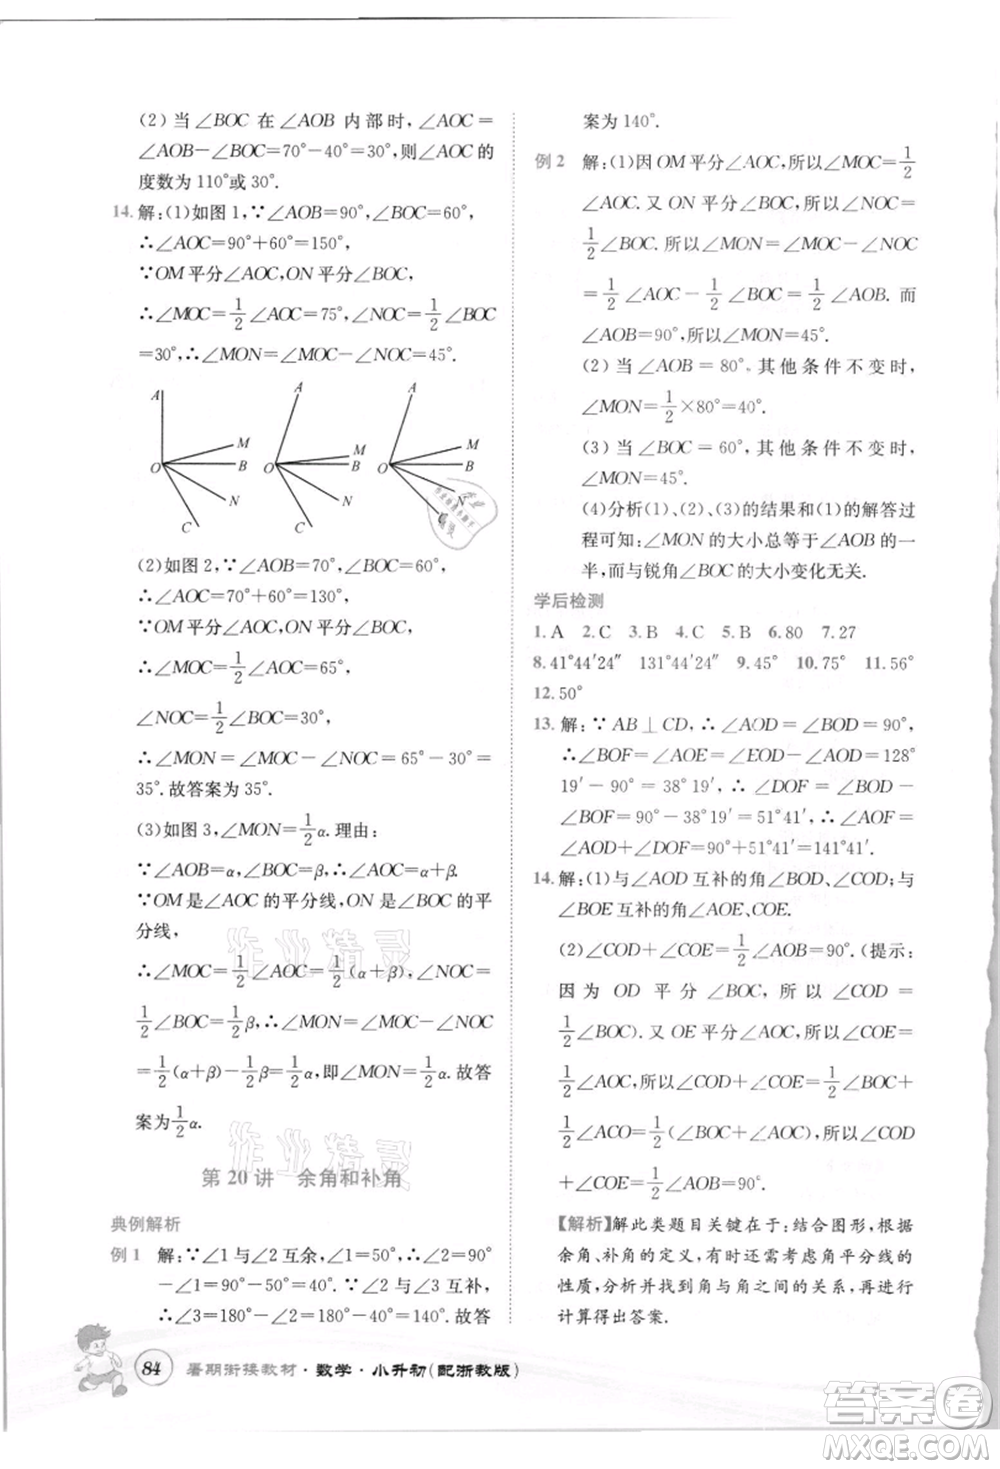 (2) 当∠BOC 在∠AOB 内部时,∠AOC=
∠AOB-∠BOC=70°-40°=30°,则∠AOC的
度数为 110°或 30°.
14. 解:(1)如图 1,∵∠AOB=90°,∠BOC=60°,
∴∠AOC=90°+60°=150°,
∵OM平分∠AOC,ON平分∠BOC,
∴∠MOC=1/2∠AOC=75°,∠NOC=1/2∠BOC
=30°,∴∠MON=∠MOC-∠NOC=45°.
A O M B N C
A O M B N
A O M B
(2)如图 2,∵∠AOB=70°,∠BOC=60°,
∴∠AOC=70°+60°=130°,
∵OM平分∠AOC,ON平分∠BOC,
∴∠MOC=1/2∠AOC=65°,
∠NOC=1/2∠BOC=30°,
∴∠MON=∠MOC-∠NOC=65°-30°=
35°.故答案为 35°.
(3)如图 3,∠MON=1/2α.理由:
∵∠AOB=α,∠BOC=β,∴∠AOC=α+β.
∵OM是∠AOC的平分线,ON是∠BOC的平
分线,
∴∠MOC=1/2∠AOC=1/2(α+β),∠NOC=
1/2∠BOC=1/2β,∴∠MON=∠MOC-∠NOC=
1/2(α+β)-1/2β=1/2α,即∠MON=1/2α.故答
案为1/2α.
第 20 讲 余角和补角
典例解析
例 1 解:∵∠1与∠2互余,∠1=50°,∴∠2=90°
-∠1=90°-50°=40°.∵∠2与∠3互补,
∴∠3=180°-∠2=180°-40°=140°.故答
案为 140°.
例 2 解:(1)因OM平分∠AOC,所以∠MOC=1/2
∠AOC.又ON平分∠BOC,所以∠NOC=
1/2∠BOC.所以∠MON=∠MOC-∠NOC
=1/2∠AOC-1/2∠BOC=1/2∠AOB.而
∠AOB=90°,所以∠MON=45°.
(2) 当∠AOB=80°,其他条件不变时,
∠MON=1/2×80°=40°.
(3) 当∠BOC=60°,其他条件不变时,
∠MON=45°.
(4)分析(1)、(2)、(3)的结果和(1)的解答过
程可知:∠MON的大小总等于∠AOB的一
半,而与锐角∠BOC的大小变化无关.
学后检测
1. A 2. C 3. B 4. C 5. B 6. 80 7. 27
8. 41°44′24″ 131°44′24″ 9. 45° 10. 75° 11. 56°
12. 50°
13. 解:∵AB⊥CD,∴∠AOD=∠BOD=90°,
∴∠BOF=∠AOE=∠EOD-∠AOD=128°
19′-90°=38°19′,∴∠DOF=∠BOD-
∠BOF=90°-38°19′=51°41′,∴∠AOF=
∠AOD+∠DOF=90°+51°41′=141°41′.
14. 解:(1)与∠AOD互补的角∠BOD、∠COD;与
∠BOE互补的角∠AOE、∠COE.
(2)∠COD+∠COE=1/2∠AOB=90°.(提示:
因为OD平分∠BOC,所以∠COD=
1/2∠BOC).又OE平分∠AOC,所以∠COE=
1/2∠AOC,所以∠COD+∠COE=1/2∠BOC+
1/2∠ACO=1/2(∠BOC+∠AOC),所以∠COD
+∠COE=1/2∠AOB=90°.
【解析】解此类题目关键在于:结合图形,根据
余角、补角的定义,有时候需要角平分线的
性质,分析并找到角与角之间的关系,再进行
计算得出答案.
84 暑期衔接教材·数学·小升初(配浙教版)
作业精灵
作业精灵
答案卷
MXQE.COM